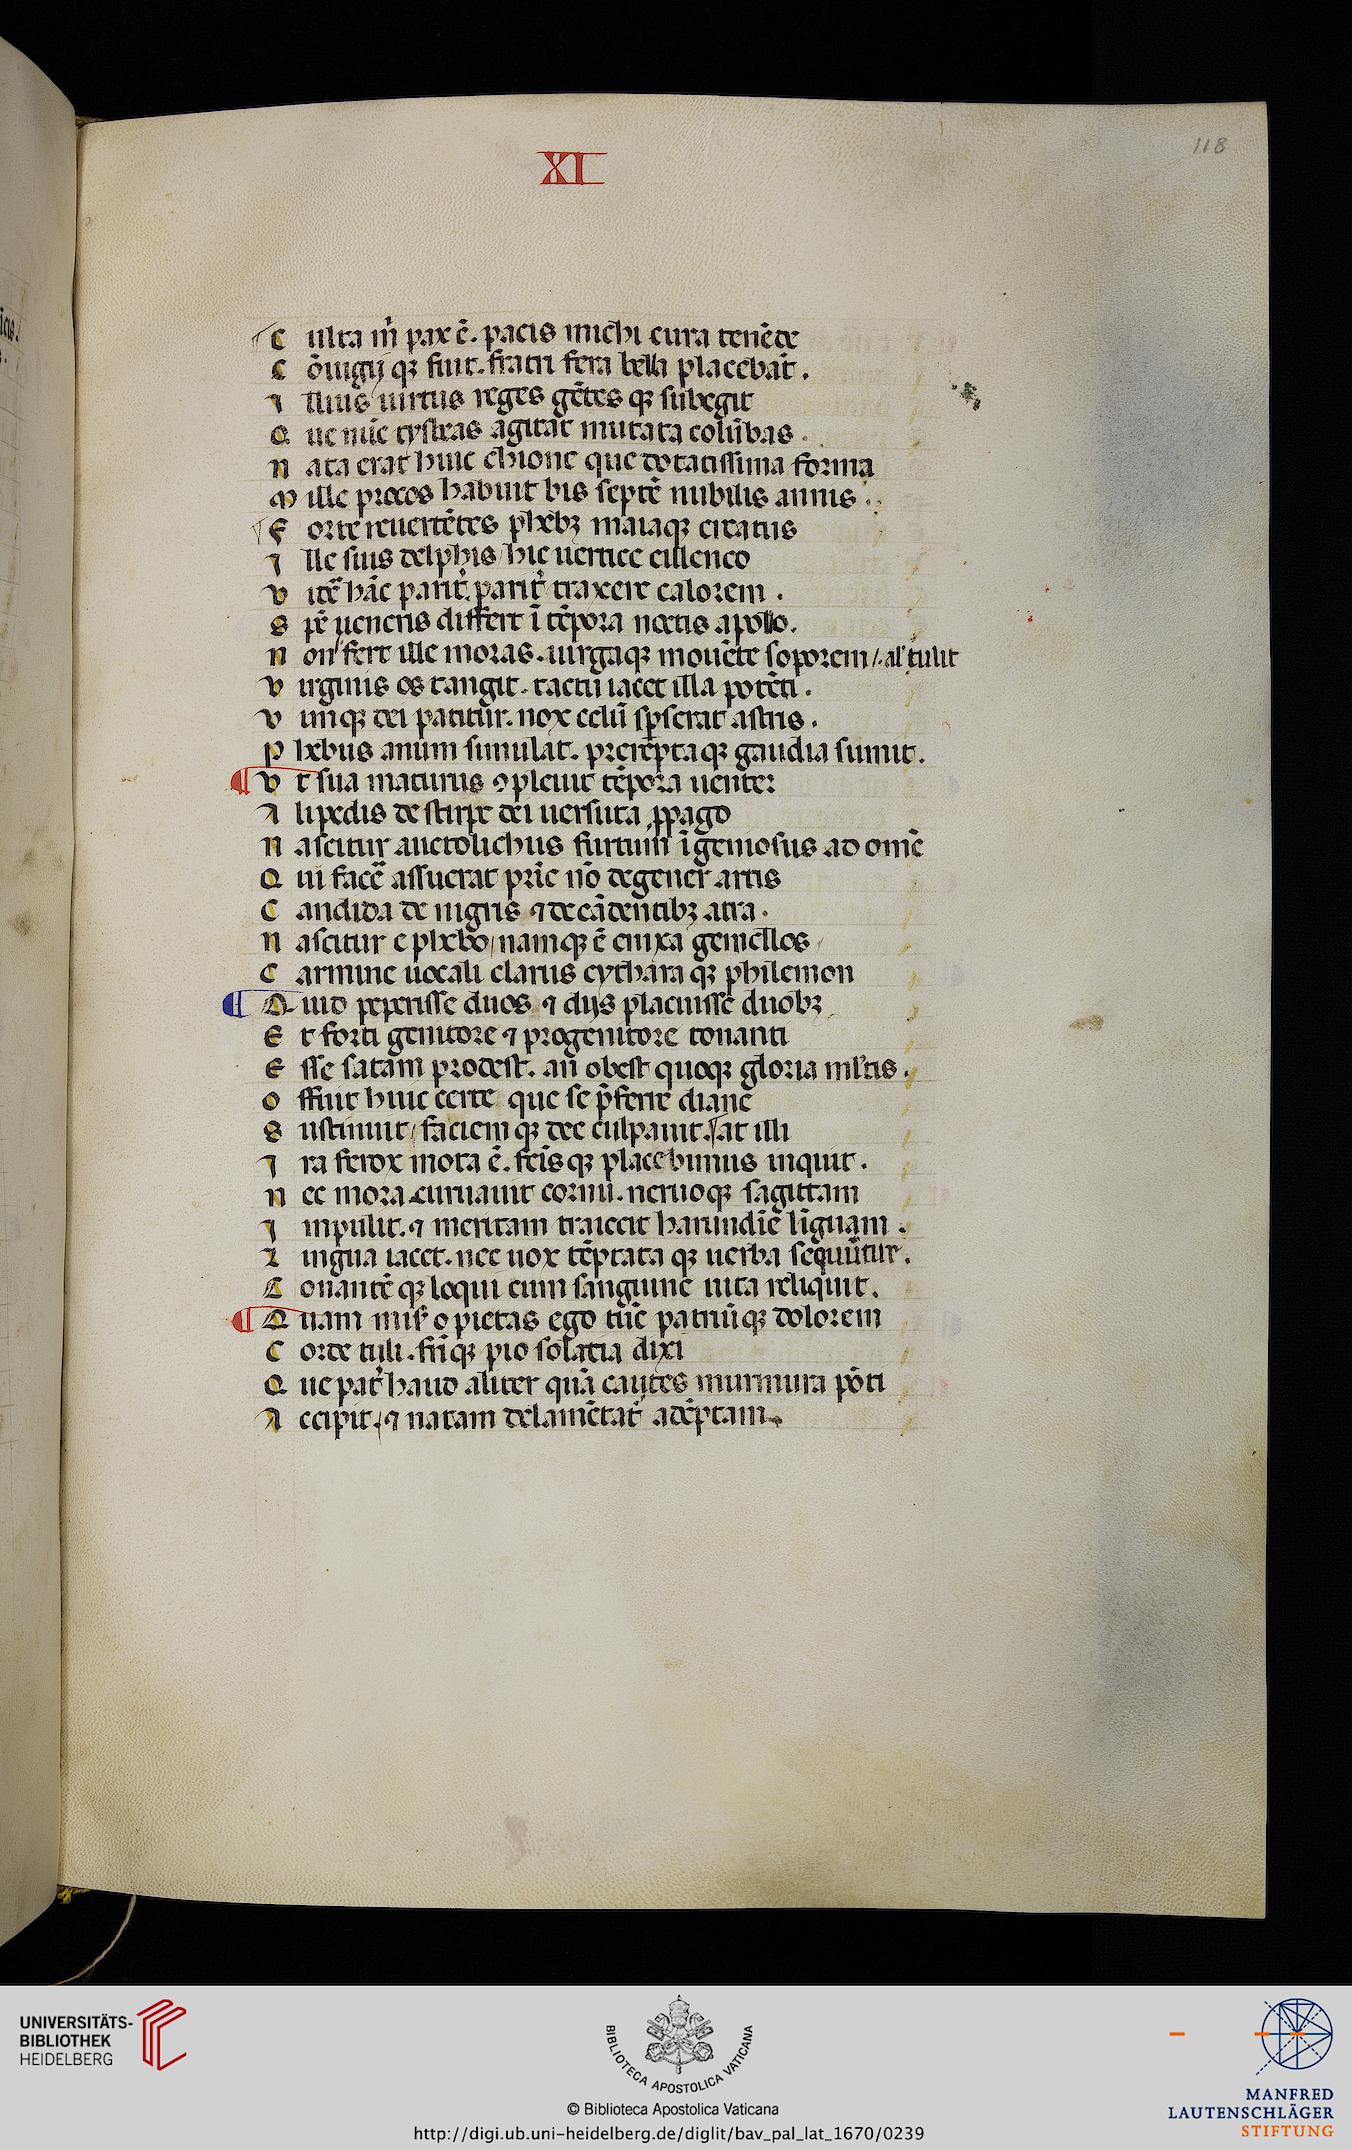 XI
118
C ulta m̄ pax ē. pacis michi cura tenēde
C ōiugij qꝫ fuit. fratri fera bella placebāt.
I llius uirtus reges gētes qꝫ subegit
Q ue nūc tysbeas agitat mutata colūbas.
N ata erat huic chione que dotatissima forma
M ille procos habuit bis septē nubilis annis.
F orte reuertētes phebꝫ maiaqꝫ creatus
I lle suis delphis hic uertice cilleneo
V idē hāc parit̄. parit̄ traxere calorem.
S pē ueneris differt ī tēpora noctis apollo.
N on fert ille moras. uirgaqꝫ mouēte soporem /. al' tulit
V irginis os tangit. tactu iacet illa potēti.
V imqꝫ dei patitur. nox celū sp̄serat astris.
P hebus anum simulat. prereptaqꝫ gaudia sumit.
¶ V t sua maturus ꝯpleuit tēpora uenter
A lipedis de stirpe dei uersuta ꝓpago
N ascitur auctolichus furtum īgeniosus ad omē
Q ui facē assuerat pr̄ie nō degener artis
C andida de nigris ⁊ de cādentibꝫ atra.
N ascitur e phebo namqꝫ ē enixa gemellos
C armine uocali clarus cythara qꝫ philemon
¶ Q uid peperisse duos ⁊ dijs placuisse duobꝫ
E t forti genitore ⁊ progenitore tonanti
E sse satam prodest. an obest quoqꝫ gloria ml'tis.
O ffuit huic certe que se p̄ferre diane
S ustinuit faciem qꝫ dee culpauit. at illi
I ra ferox mota ē. fctīsqꝫ placebimus inquit.
N ec mora curuauit cornu. neruoqꝫ sagittam
I mpulit. ⁊ meritam traiecit harundīe līguam.
L ingua iacet. nec uox tēptata qꝫ uerba sequūtur.
C onantē qꝫ loqui cum sanguine uita reliquit.
¶ Q uam mis̄ o pietas ego tūc patruūqꝫ dolorem
C orde tuli. fr̄iqꝫ pio solatia dixi
Q ue pat̄ haud aliter quā cautes murmura pōti
A ccipit. ⁊ natam delamētat̄ adēptam.
UNIVERSITÄTS-
BIBLIOTHEK
HEIDELBERG
BIBLIOTECA APOSTOLICA VATICANA
© Biblioteca Apostolica Vaticana
http://digi.ub.uni-heidelberg.de/diglit/bav_pal_lat_1670/0239
MANFRED
LAUTENSCHLÄGER
STIFTUNG